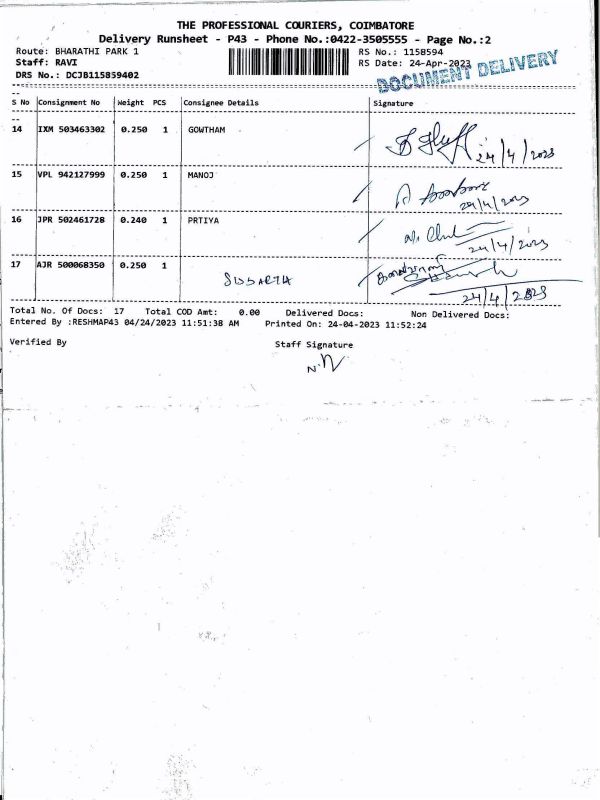 THE PROFESSIONAL COURIERS, COIMBATORE
Delivery Runsheet - P43 - Phone No.:0422-3505555 - Page No.:2
Route: BHARATHI PARK 1 RS No.: 1158594
Staff: RAVI RS Date: 24-Apr-2023
DRS No.: DCJB115859402
DOCUMENT DELIVERY
S No Consignment No Weight PCS Consignee Details Signature
14 IXM 503463302 0.250 1 GOWTHAM
24/4/2023
15 VPL 942127999 0.250 1 MANOJ
24/4/2023
16 JPR 502461728 0.240 1 PRTIYA
24/4/2023
17 AJR 500068350 0.250 1
24/4/2023
Total No. Of Docs: 17 Total COD Amt: 0.00 Delivered Docs: Non Delivered Docs:
Entered By :RESHMAP43 04/24/2023 11:51:38 AM Printed On: 24-04-2023 11:52:24
Verified By Staff Signature